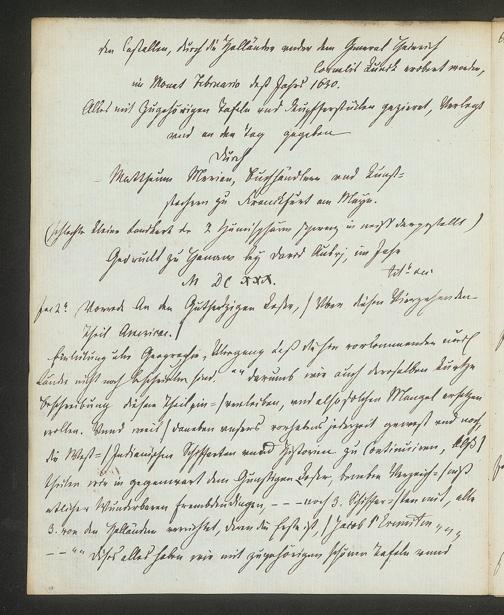 den Castellen, durch die Holländer under dem General Heinrich
Cornelis Lunck erobert worden,
im Monat Februario deß Jahrs 1630.
Alles mit zugehörigen Tafeln und Kupfferstücken gezieret, Verlegt
und an den Tag gegeben
Durch
Matthaeum Merian, Buchhändlern und Kunst-
stechern zu Franckfurt am Mayn.
(schlechte kleine Landkart der 2 Hemisphären in weiß dargestellt)
Gedruckt zu Hanaw bey David Aubrj, im Jahr
M DC XXX.
Vorrede An den Gutherzigen Leser, / Uber diesen Vierzehenden-
Theil Americae. /
Einleitung über Geographie, Umgang daß die hier vorkommenden noch
Lände nicht noch beschrieben sind. "" darumb wir auch derselben kurtze
Beschreibung diesem Theil ein- / verleiben, und also solchen Mangel ersetzen
wollen. Unnd weil / daneben unsers vorhabens jederzeit gewest und noch,
die West- / Indianischen Schiffarten unnd Historien zu Continuiren, Alß /
theilen wir in gegenwart dem Günstigen Leser, beneben Verzeich- / nuß
etlicher Wunderbaren frembden dingen, --- noch 3. Schiffar- / ten mit, alle
3. von den Holländern verrichtet, deren die Erste ist, / Jacob l'Eremiten """
-- "" Dises alles haben wir mit zugehörigen schönen Tafeln unnd